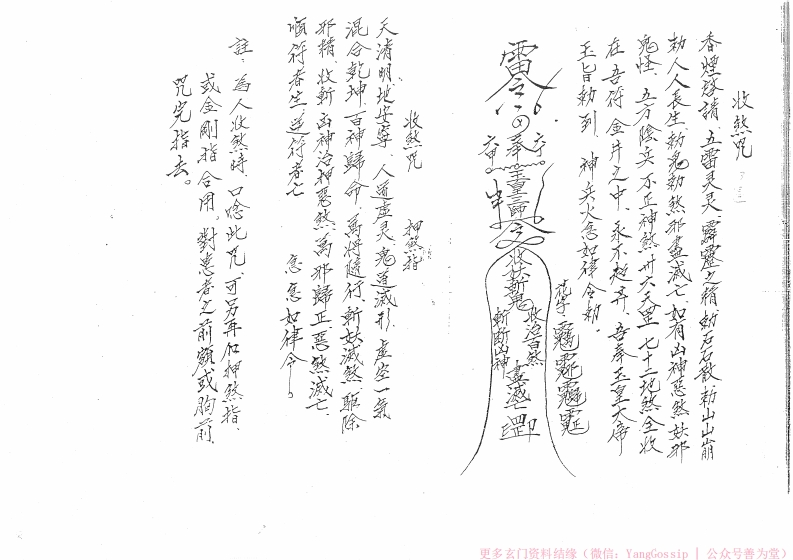 收煞咒
香煙啟請 五雷灵灵 霹靂之精 勅石石散 勅山山崩
勅人人長生 勅鬼勅煞邪盡滅亡 如有凶神惡煞妖邪
鬼怪 五方陰兵 不正神煞 卅六天罡 七十二地煞 全收
在吾符 金井之中 永不超昇 吾奉玉皇大帝
玉旨勅到 神兵火急如律令勅
雷令
奉
玉皇三師
六甲
六丁
收妖斬鬼
收治百煞
斬斷凶神
盡滅亡罡印
花字
收煞咒 押煞指
天清明 地安寧 人道虛灵 鬼道滅形 虛空一氣
混合乾坤 百神歸命 萬將隨行 斬妖滅煞 驅除
邪精 收斬凶神 治押惡煞 萬邪歸正 惡煞滅亡
順符者生 逆行者亡 急急如律令。
註：為人收煞時 口唸此咒 可另再加押煞指
或金剛指合用 對患者之前額或胸前
咒完指去。
更多玄门资料结缘（微信：YangGossip | 公众号善为堂）